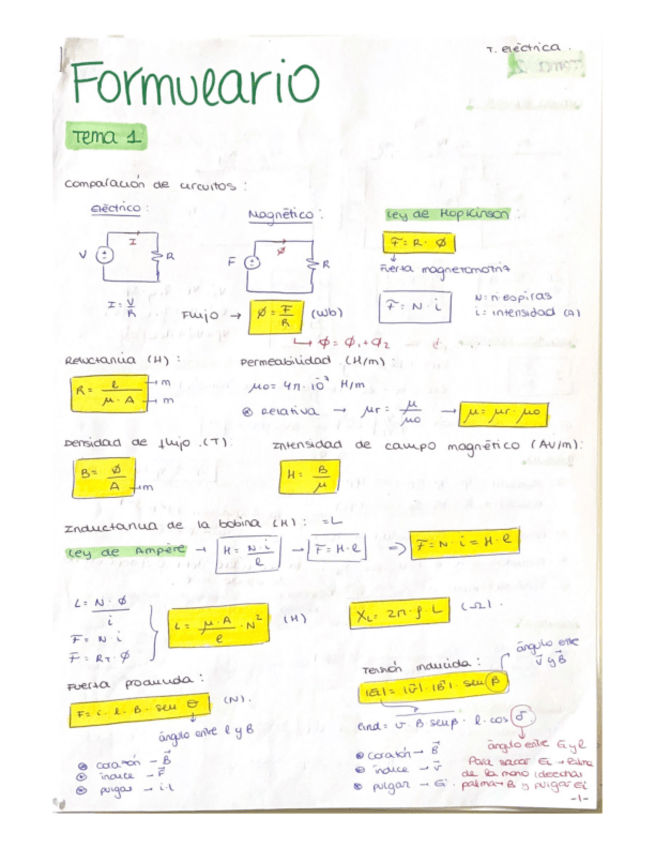 T. eléctrica.
Formulario
Tema 1
Comparación de circuitos:
eléctrico:
Magnético:
Ley de Hopkinson:
I
V
R
F
φ
R
F = R · φ
Fuerza magnetomotriz
I = V/R
Flujo → φ = F/R (Wb)
F = N · i
N = nº espiras
i = intensidad (A)
↳ φ = φ1 + φ2
Reluctancia (H):
Permeabilidad (H/m):
R = l/(μ · A) → m → m
μ0 = 4π · 10⁻⁷ H/m
⊗ Relativa → μr = μ/μ0 → μ = μr · μ0
Densidad de flujo (T):
Intensidad de campo magnético (Av/m):
B = φ/A → m
H = B/μ
Inductancia de la bobina (H): = L
Ley de Ampère → H = N·i/l → F = H·l ⇒ F = N·i = H·l
L = N · φ/i
F = N · i
F = RT · φ
L = μ·A/l · N² (H)
XL = 2π · f · L (Ω).
Fuerza producida:
F = i · l · B · sen θ (N).
ángulo entre l y B
corazón → B
índice → F
pulgar → i·l
Tensión inducida:
ángulo entre v y B
|Ei| = |v| · |B| · sen β
eind = v · B senβ · l · cos δ
ángulo entre Ei y l
corazón → B
índice → v
pulgar → Ei
Para sacar Ei → Palma
de la mano (derecha)
palma → B y pulgar Ei
-1-